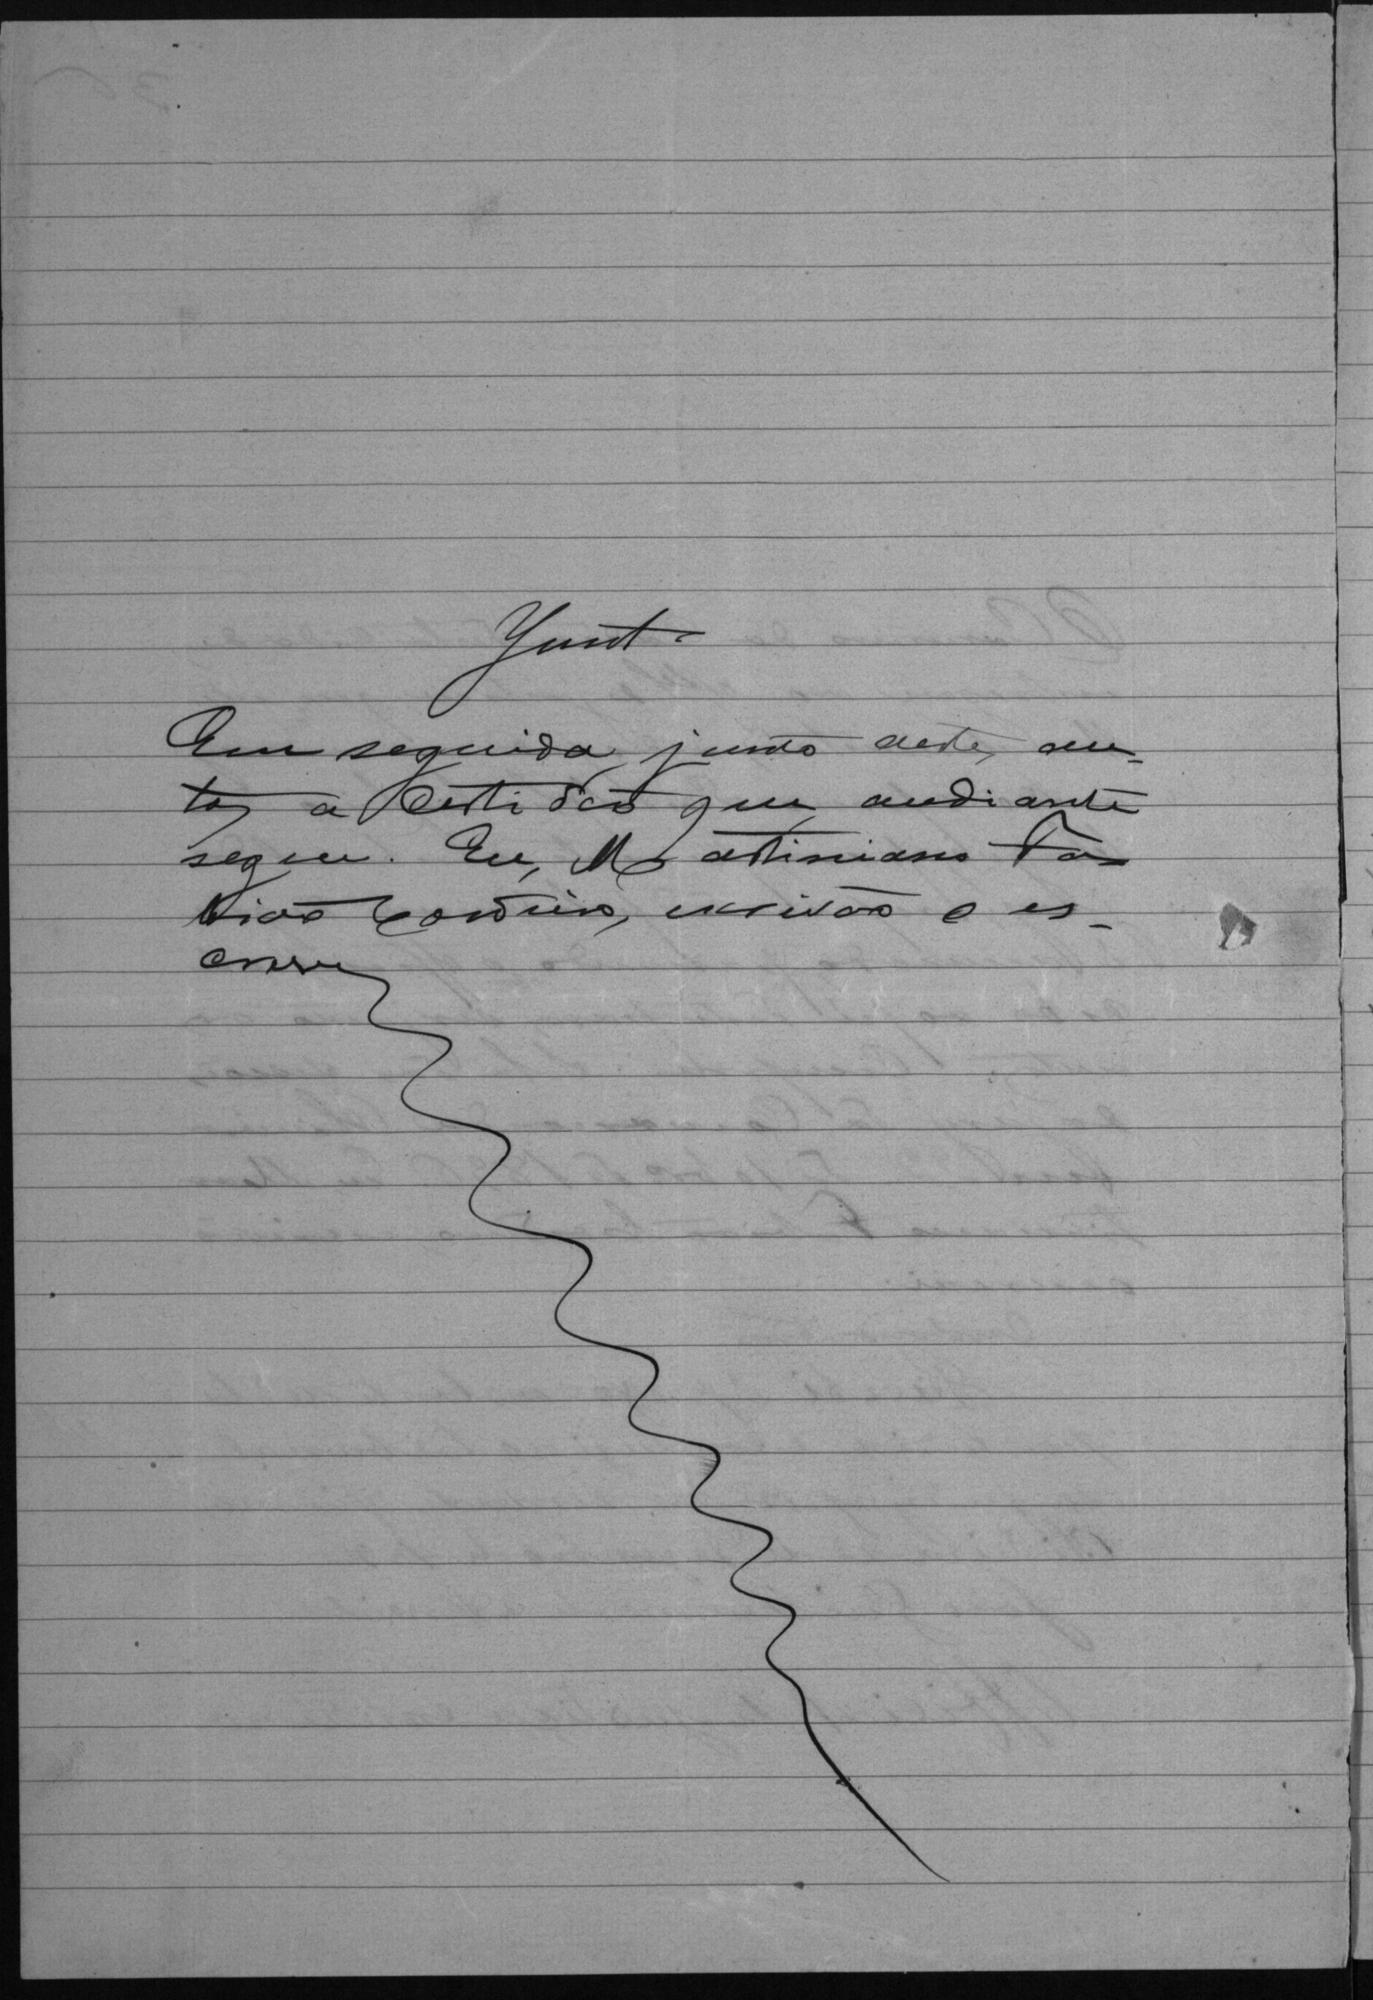 Junt.
Em seguida, junto deste, au-
tos a Certidão que audiante
segue. Eu, Martiniano Fa-
bião Cordeiro, escrivão o es-
crevi